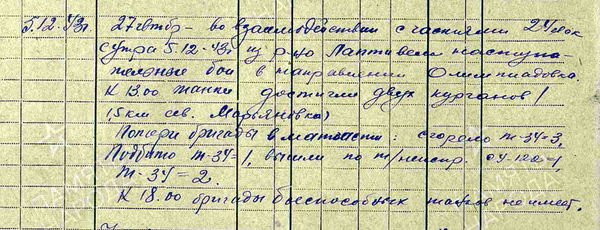 5.12.43г. 27 гвтбр - во взаимодействии с частями 24 ск
с утра 5.12.43г из р-на Лаптивели наступа-
тельные бои в направлении Олимпиадовка.
К 13.00 танки достигли двух курганов /
(5 км сев. Марьяновка)
Потери бригады в матчасти: сгорело Т-34=3,
Подбито Т-34=1, вышли по т/неиспр. СУ-122=1,
Т-34=2.
К 18.00 бригады боеспособных танков не имеет.